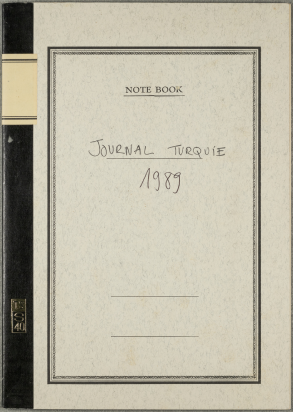 NOTE BOOK
JOURNAL TURQUIE
1989